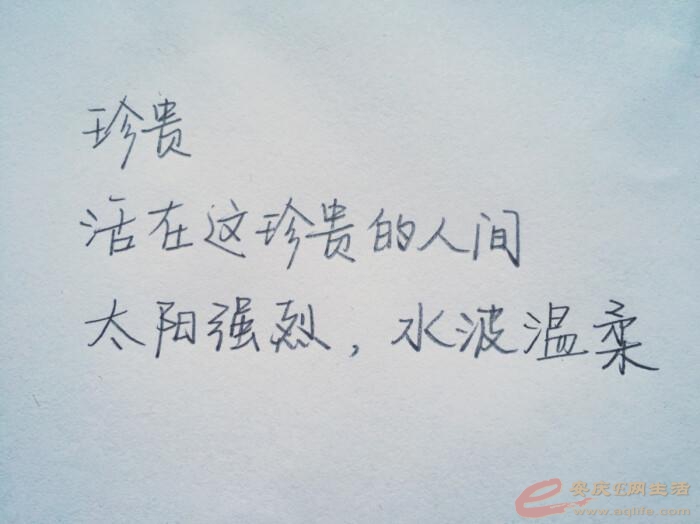 珍贵
活在这珍贵的人间
太阳强烈，水波温柔
安庆E网生活
www.aqlife.com